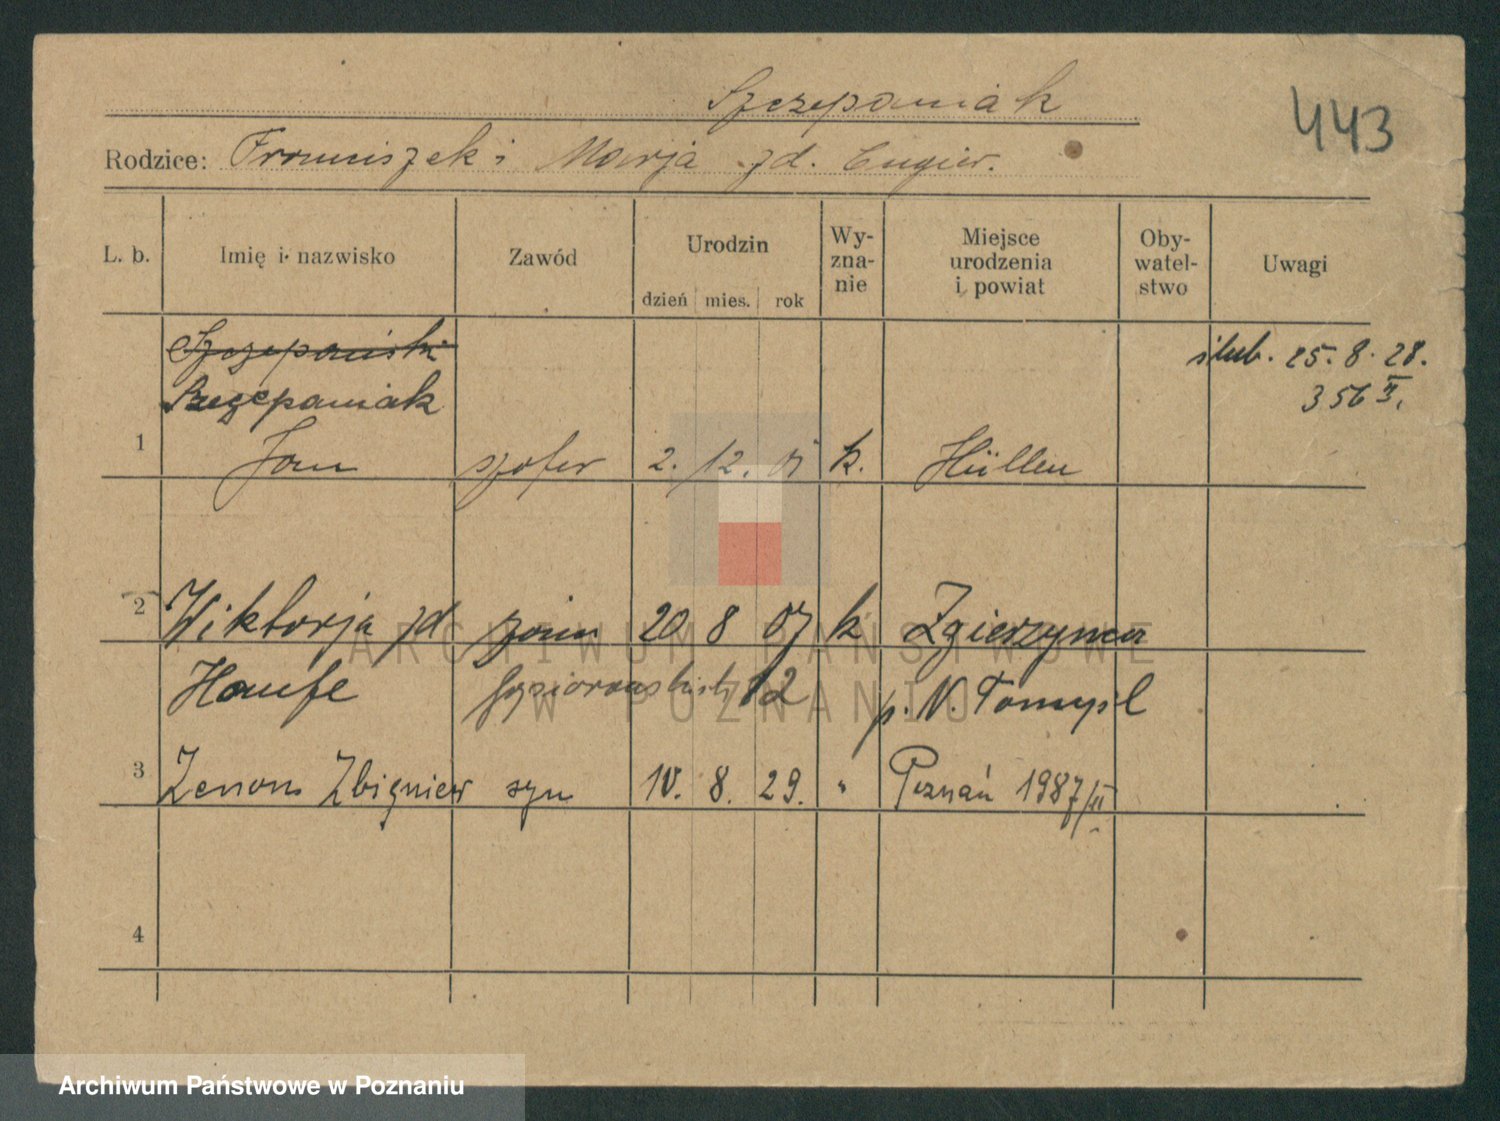 Szczepaniak
443
Rodzice: Franciszek i Marja zd. Cugier.
L. b. Imię i nazwisko Zawód Urodzin dzień mies. rok Wy-zna-nie Miejsce urodzenia i powiat Oby-watel-stwo Uwagi
Szczepański ślub. 25. 8. 28.
Szczepaniak 356 II.
1 Jan szofer 2. 12. 05 k. Hüllen
2 Wiktorja zd żona 20 8 07 k Zgierzynka
Haufe 12 p. N. Tomyśl
3 Zenon Zbigniew syn 10. 8. 29. " Poznań 1987/II
4
ARCHIWUM PAŃSTWOWE
W POZNANIU
Archiwum Państwowe w Poznaniu